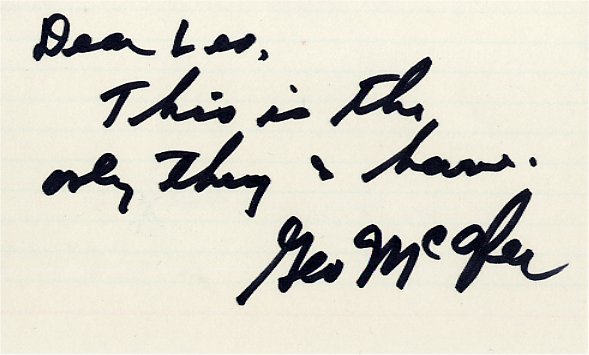 Dear Leo,
This is the
only thing I have.
Geo McAfee